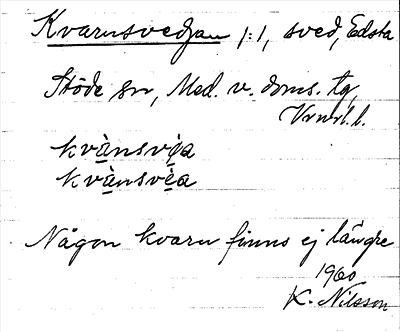 Kvarnsvedjan 1:1, sved, Edsta
Stöde sn, Med. v. doms. tg,
Vrnrl.l.
kvànsvẹ̀a
kvànsvèa
Någon kvarn finns ej längre
1960
K. Nilsson